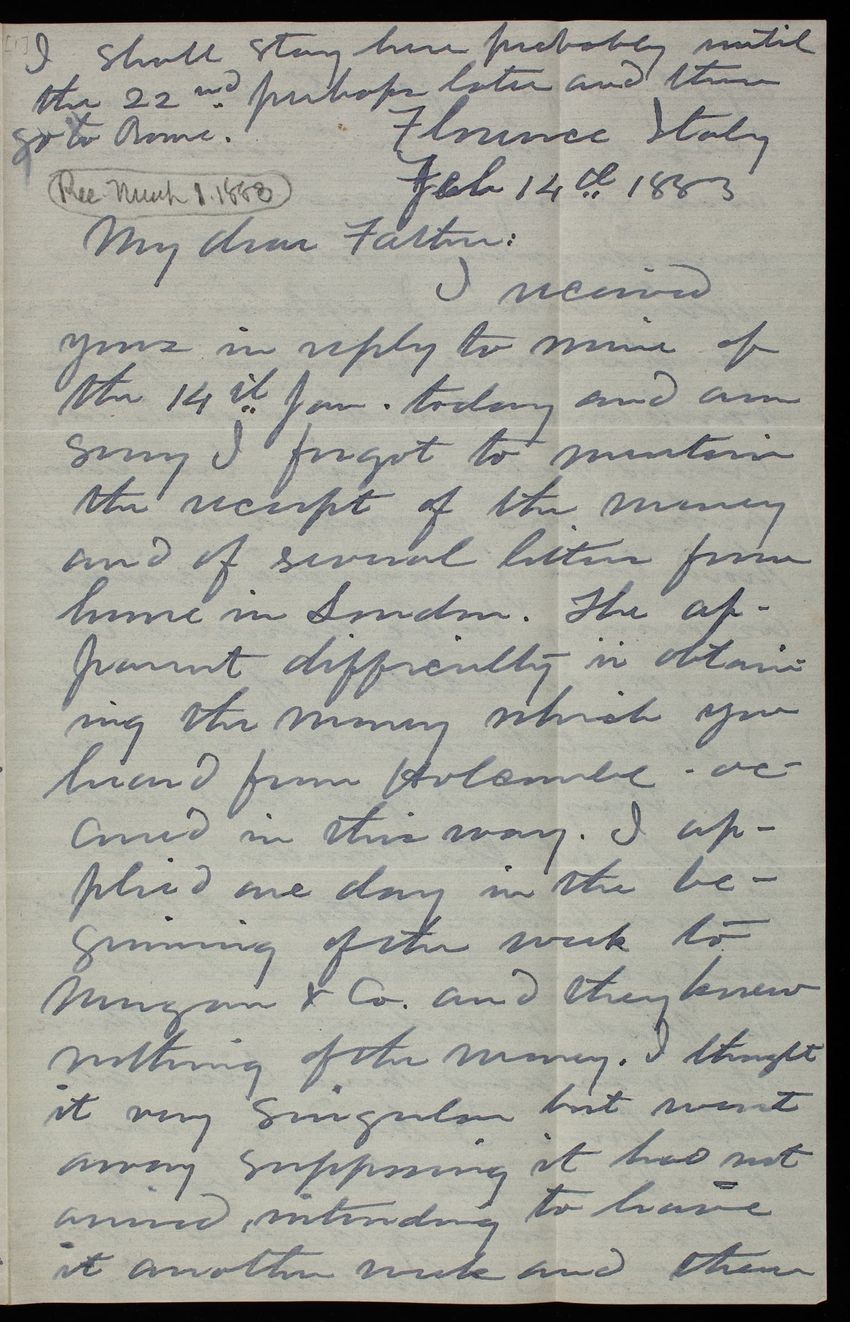 [1]
I shall stay here probably until
the 22nd perhaps later and then
go to Rome.
Florence Italy
Rec March 1. 1883
Feb 14th 1883
My dear Father:
I received
yours in reply to mine of
the 14th Jan. today and am
sorry I forgot to mention
the receipt of the money
and of several letters from
home in London. The ap-
parent difficulty in obtain-
ing the money which you
heard from Holcombe - oc-
cured in this way. I ap-
plied one day in the be-
ginning of the week to
Morgan & Co. and they knew
nothing of the money. I thought
it very singular but went
away supposing it had not
arrived, intending to leave
it another week and then